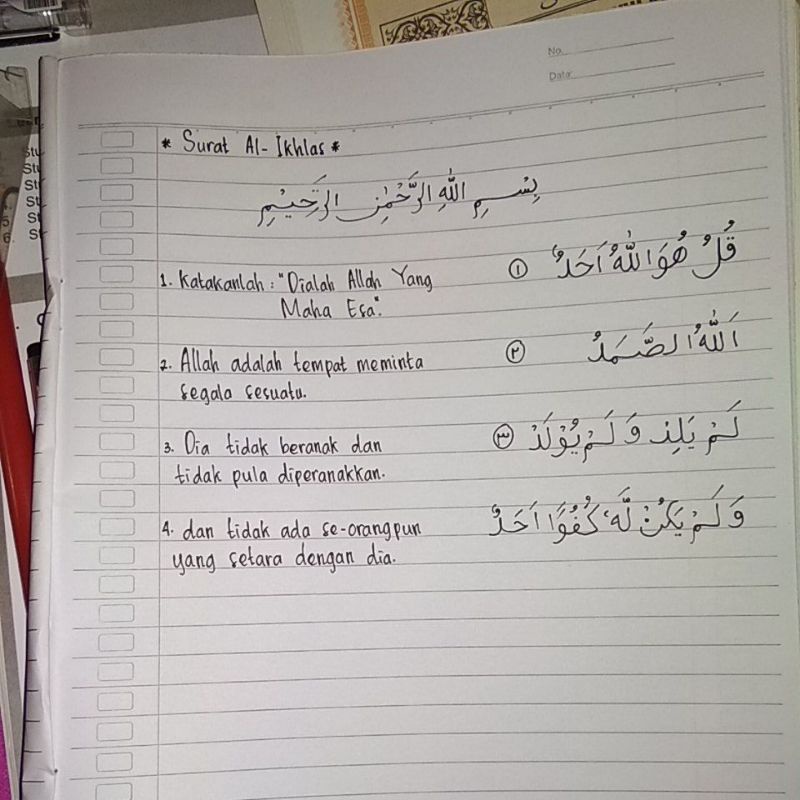 No.
Date:
* Surat Al-Ikhlas *
بِسْمِ اللّٰهِ الرَّحْمٰنِ الرَّحِيْمِ
قُلْ هُوَ اللّٰهُ اَحَدٌ ①
1. Katakanlah: "Dialah Allah Yang
Maha Esa".
اَللّٰهُ الصَّمَدُ ②
2. Allah adalah tempat meminta
segala sesuatu.
لَمْ يَلِدْ وَلَمْ يُوْلَدْ ③
3. Dia tidak beranak dan
tidak pula diperanakkan.
وَلَمْ يَكُنْ لَّهٗ كُفُوًا اَحَدٌ
4. dan tidak ada se-orangpun
yang setara dengan dia.
Stu
Stu
St
St
St
6. St